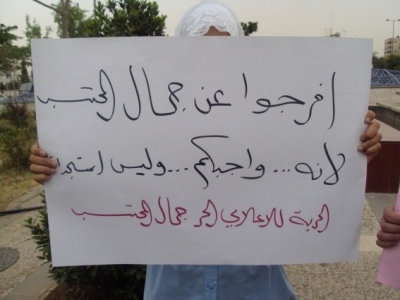 افرجوا عن جمال المحتسب
لانه... واجبكم... وليس
الحرية للاعلامي الحر جمال المحتسب